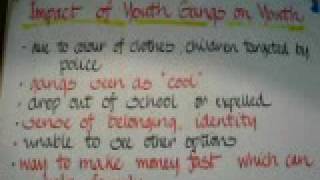 Impact of Youth Gangs on Youth
· due to colour of clothes, children targeted by
police
· gangs seen as "cool"
· drop out of school or expelled
· sense of belonging, identity
· unable to see other options
· way to make money fast which can